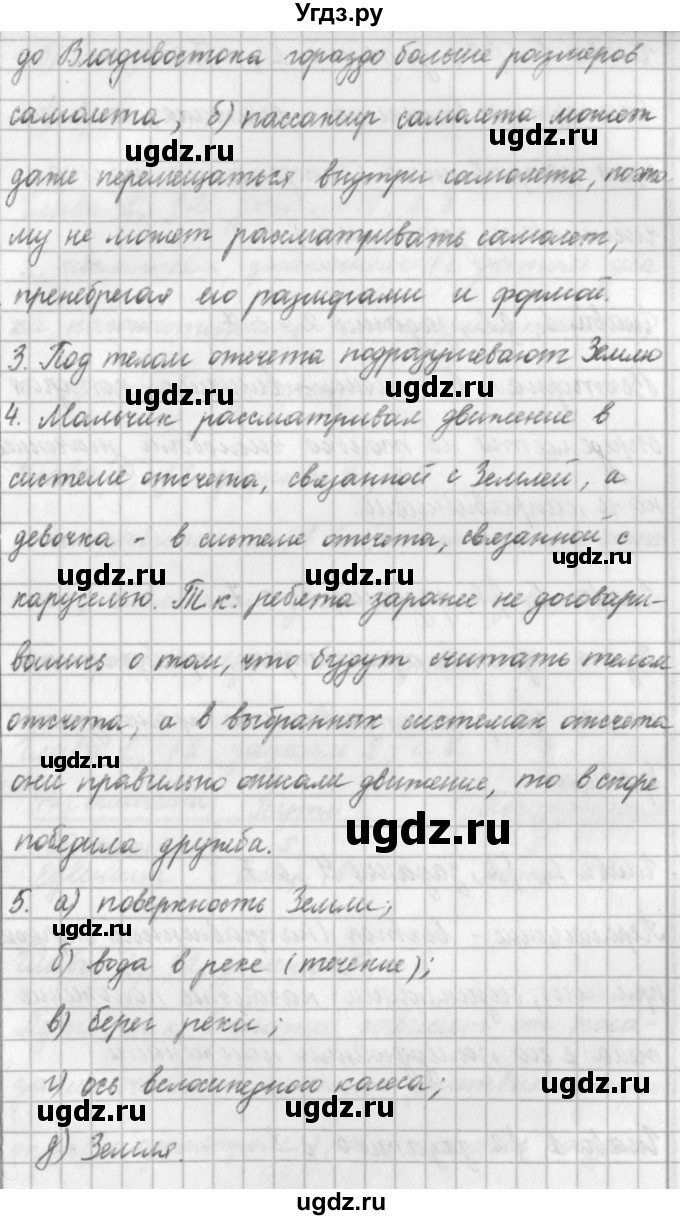 Угдз.ру
до Владивостока гораздо больше размеров
самолета; б) пассажир самолета может
ugdz.ru ugdz.ru
даже перемещаться внутри самолета, поэто-
му не может рассматривать самолет,
ugdz.ru ugdz.ru
пренебрегая его размерами и формой.
3. Под телом отсчета подразумевают Землю
ugdz.ru ugdz.ru
4. Мальчик рассматривал движение в
системе отсчета, связанной с Землей, а
девочка - в системе отсчета, связанной с
ugdz.ru ugdz.ru ugdz.ru
каруселью. Т.к. ребята заранее не договари-
вались о том, что будут считать телом
ugdz.ru ugdz.ru
отсчета, а в выбранных системах отсчета
ugdz.ru
они правильно описали движение, то в споре
победила дружба.
ugdz.ru
5. а) поверхность Земли;
ugdz.ru
б) вода в реке (течение);
ugdz.ru
в) берег реки;
г) ось велосипедного колеса;
ugdz.ru ugdz.ru ugdz.ru
д) Земля.
ugdz.ru